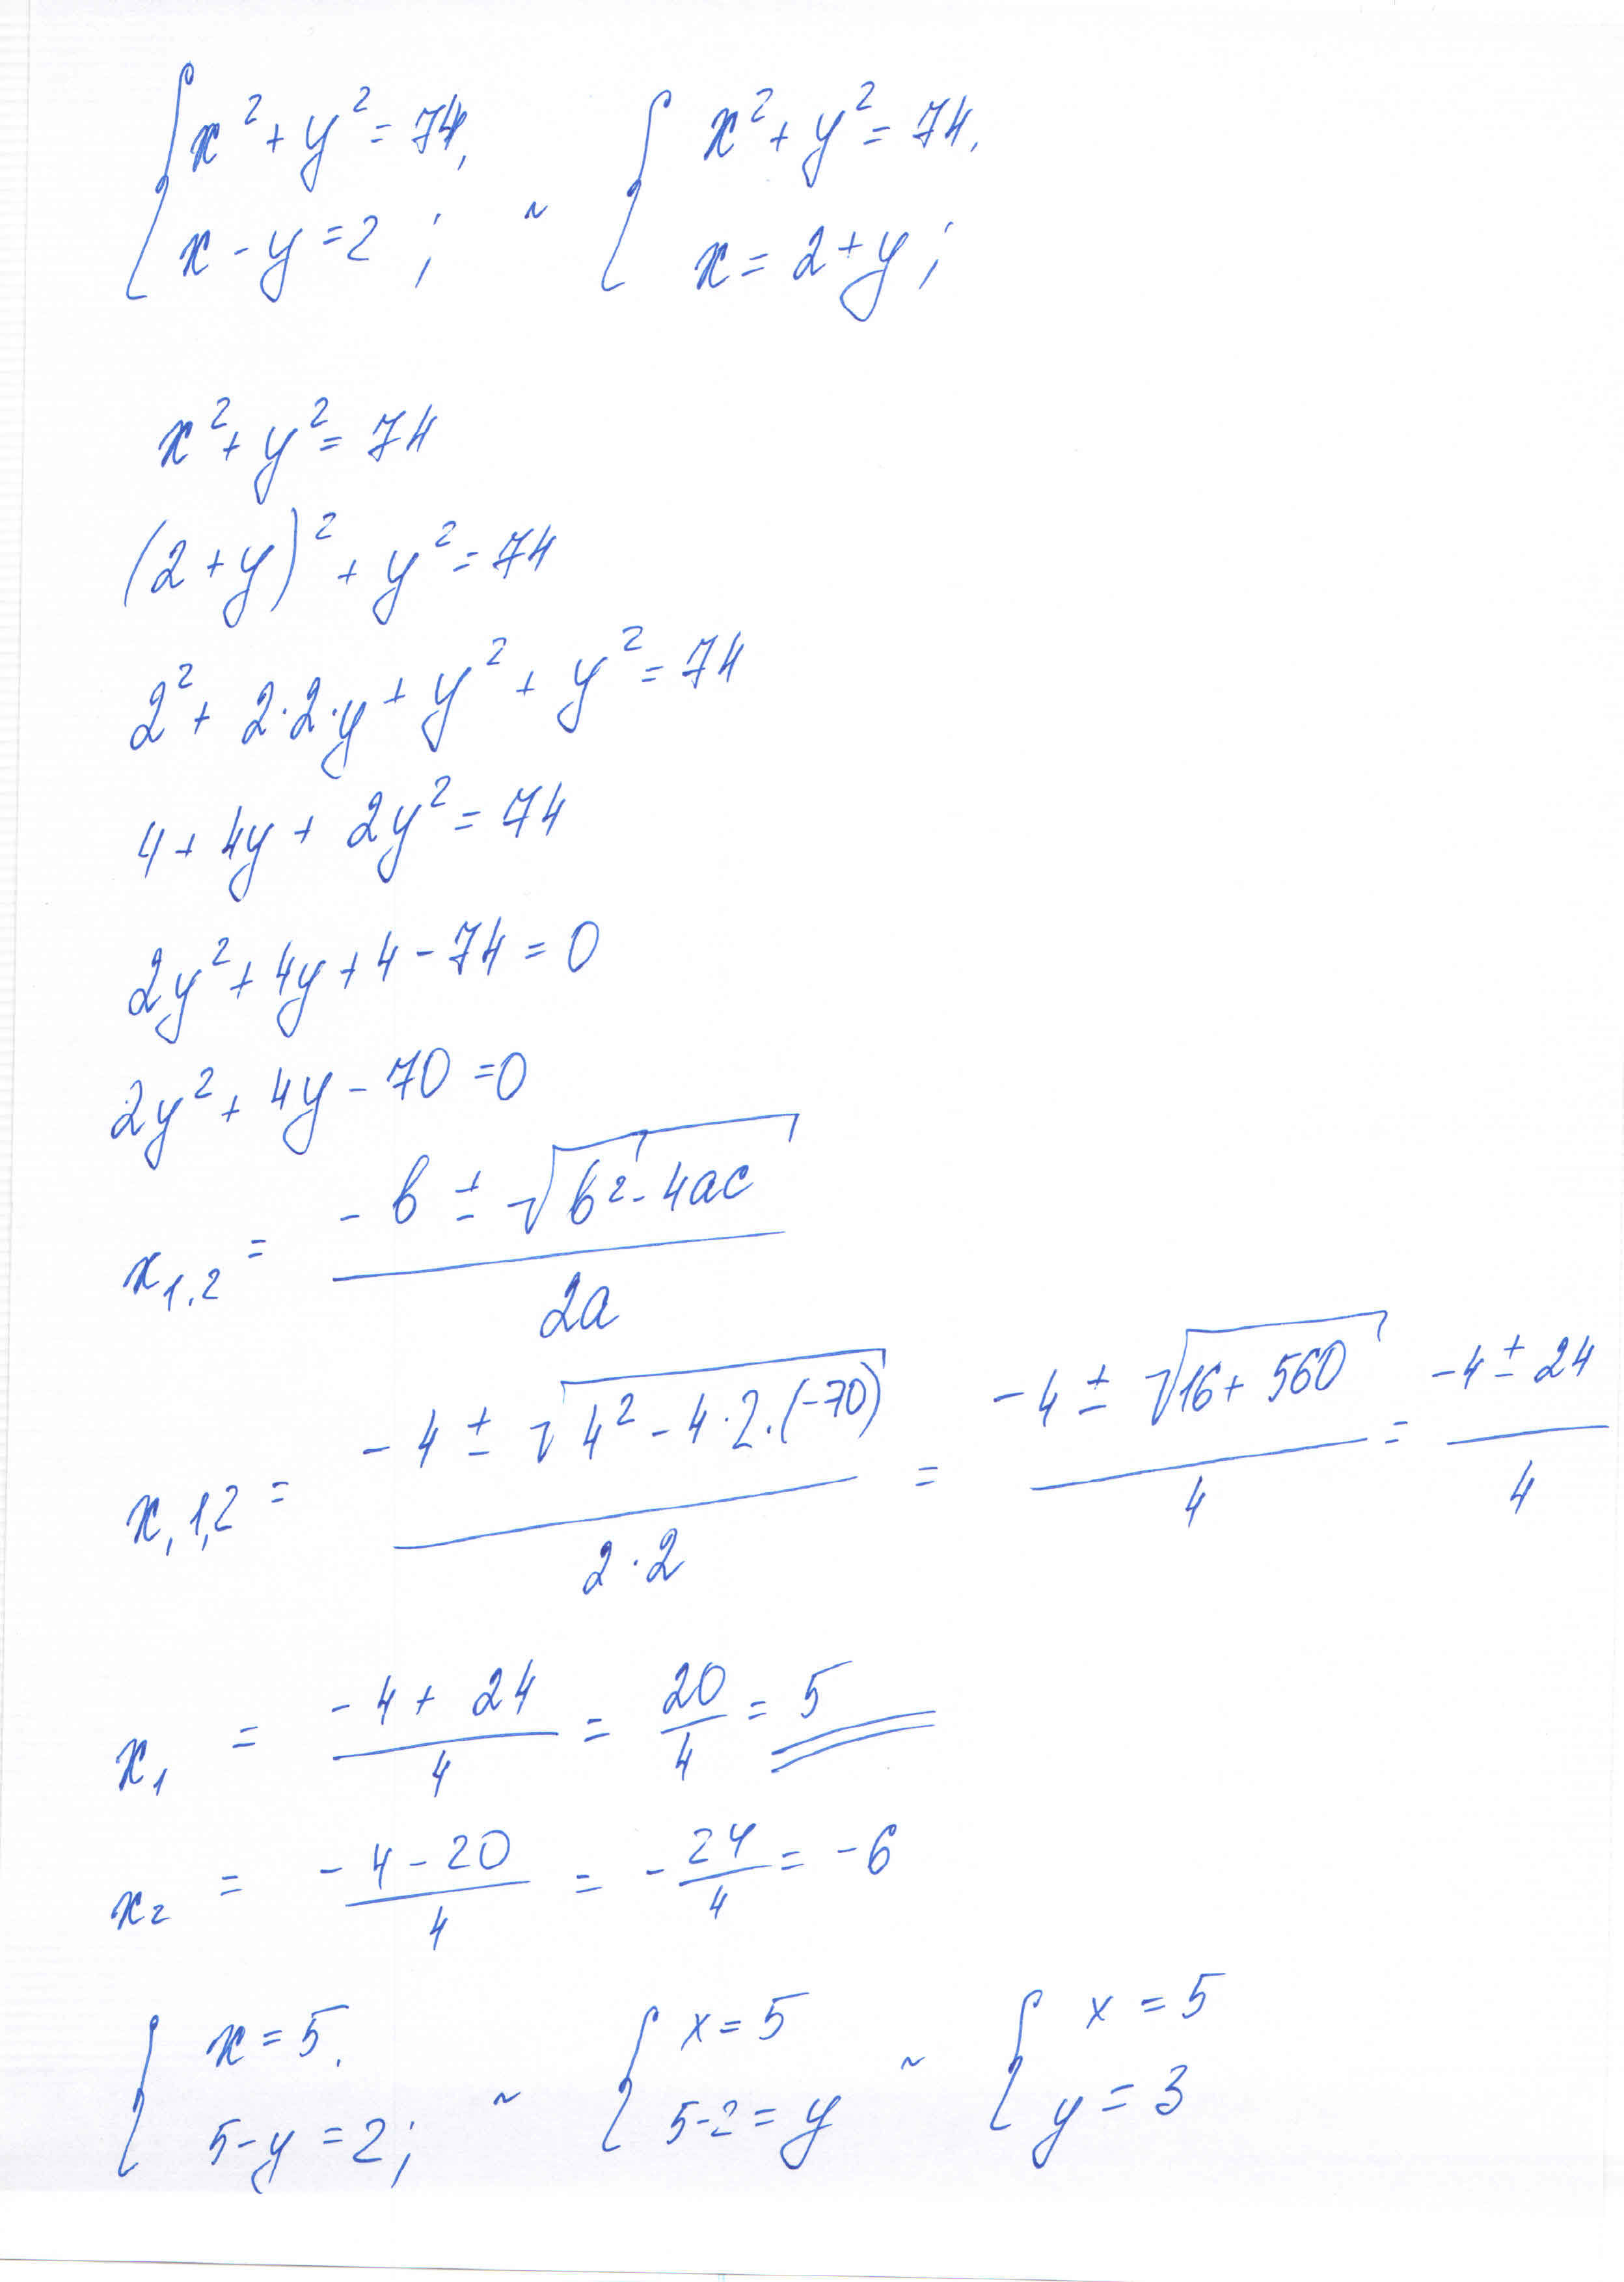 { x² + y² = 74, ~ { x² + y² = 74,
x - y = 2 ; x = 2 + y ;
x² + y² = 74
(2 + y)² + y² = 74
2² + 2·2·y + y² + y² = 74
4 + 4y + 2y² = 74
2y² + 4y + 4 - 74 = 0
2y² + 4y - 70 = 0
x₁,₂ = (-b ± √(b² - 4ac)) / 2a
x,₁,₂ = (-4 ± √(4² - 4·2·(-70))) / 2·2 = (-4 ± √(16 + 560)) / 4 = (-4 ± 24) / 4
x₁ = (-4 + 24) / 4 = 20/4 = 5
x₂ = (-4 - 20) / 4 = -24/4 = -6
{ x = 5, ~ { x = 5 ~ { x = 5
5 - y = 2; 5 - 2 = y y = 3